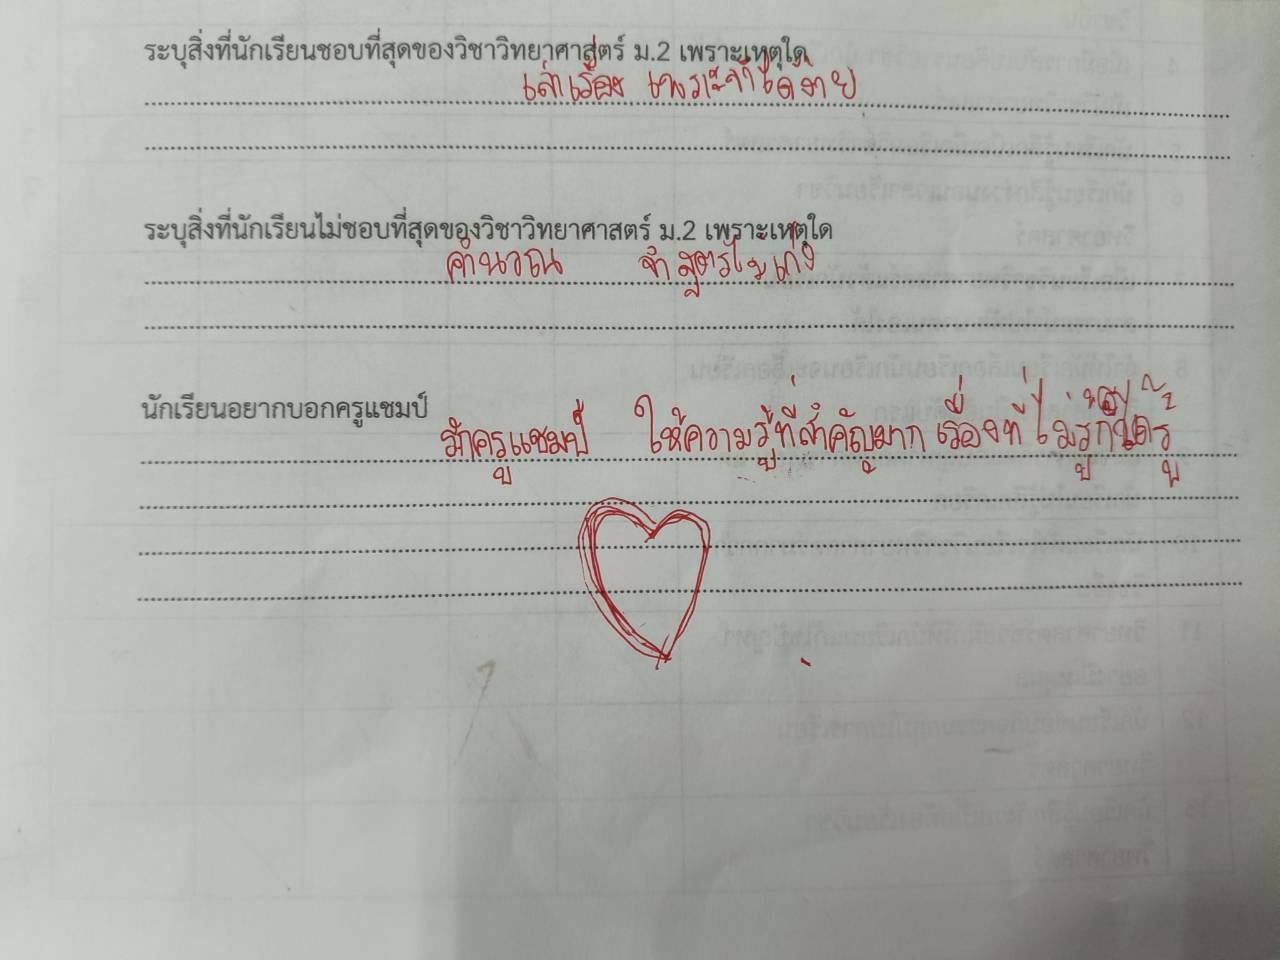 ระบุสิ่งที่นักเรียนชอบที่สุดของวิชาวิทยาศาสตร์ ม.2 เพราะเหตุใด
เล่าเรื่อง เพราะจำได้ง่าย
ระบุสิ่งที่นักเรียนไม่ชอบที่สุดของวิชาวิทยาศาสตร์ ม.2 เพราะเหตุใด
คำนวณ จำสูตรไม่เก่ง
นักเรียนอยากบอกครูแชมป์
รักครูแชมป์ ให้ความรู้ที่สำคัญมาก เรื่องที่ไม่รู้ก็ได้รู้